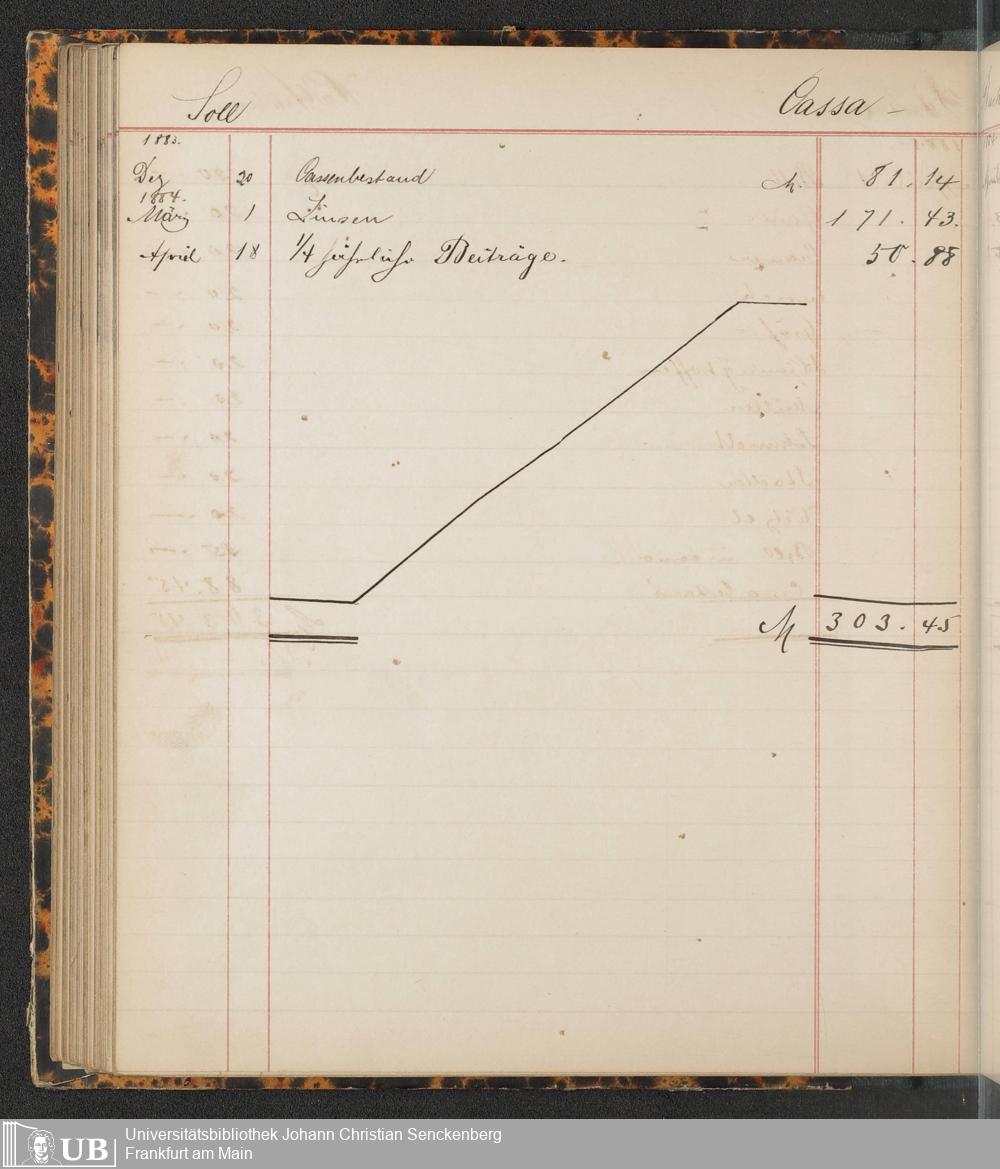 Soll Cassa –
1883.
Dez 20 Cassenbestand M. 81. 14
1884.
März 1 Zinsen " 171. 43.
April 18 1/4 jährliche Beiträge. 50. 88
M 303. 45
UB Universitätsbibliothek Johann Christian Senckenberg
Frankfurt am Main